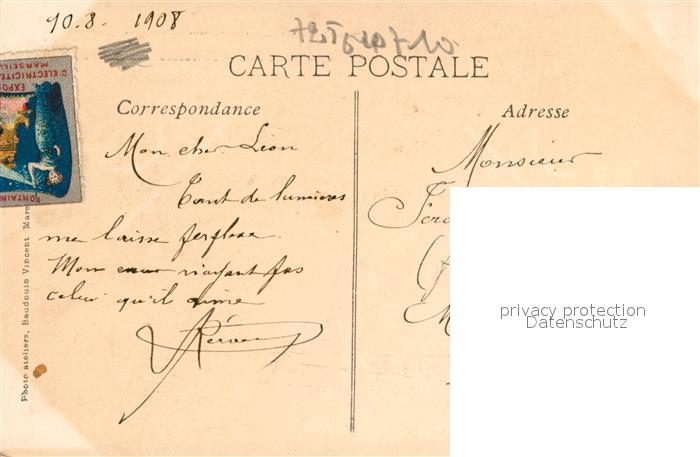 10.8. 1908
CARTE POSTALE
Correspondance
Adresse
Mon cher Léon
Tant de lumieres
me laisse perplexe.
Mon cœur n'ayant pas
celui qu'il aime
Monsieur
EXPOS
D'ELECTRICITE
MARSEILL
FONTAINE
Photo ateliers, Baudouin Vincent Mars
privacy protection
Datenschutz